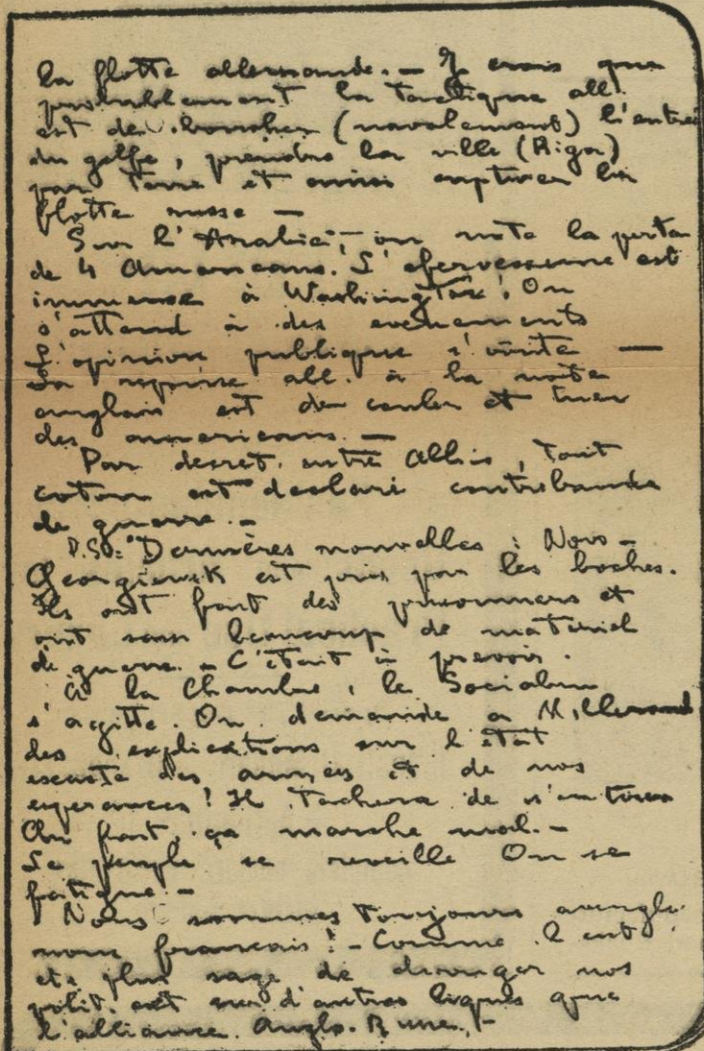 la flotte allemande. — Je crois que
probablement la tactique all.
est de boucher (navalement) l'entrée
du golfe, prendre la ville (Riga)
par terre et ainsi capturer la
flotte russe —
Sur l'Arabic, — on note la perte
de 4 Americans. L'efervessence est
immense à Washington. On
s'attend à des evenements
L'opinion publique s'irrite —
La reponse all. à la note
anglais est de couler et tuer
des americans. —
Par decret. entre Alliés, tout
coton est declaré contrebande
de guerre. —
P.S.= Dernières nouvelles : Novo-
Georgiewsk est pris par les boches.
Ils ont fait des prisonniers et
ont beaucoup de materiel
de guerre. — C'était à prevoir.
A la Chambre, le
s'agitte. On demande a Millerand
des explications sur l'état
des armées et de nos
esperances! Il tachera de s'en tirer
Au front, ça marche mal. —
Le peuple se reveille On se
fatigue —
Nous sommes toujours
nous francais! — Comme l'eut
ete plus sage de nos
polit. ext sur d'autres lignes que
l'alliance. Anglo. Russe. —